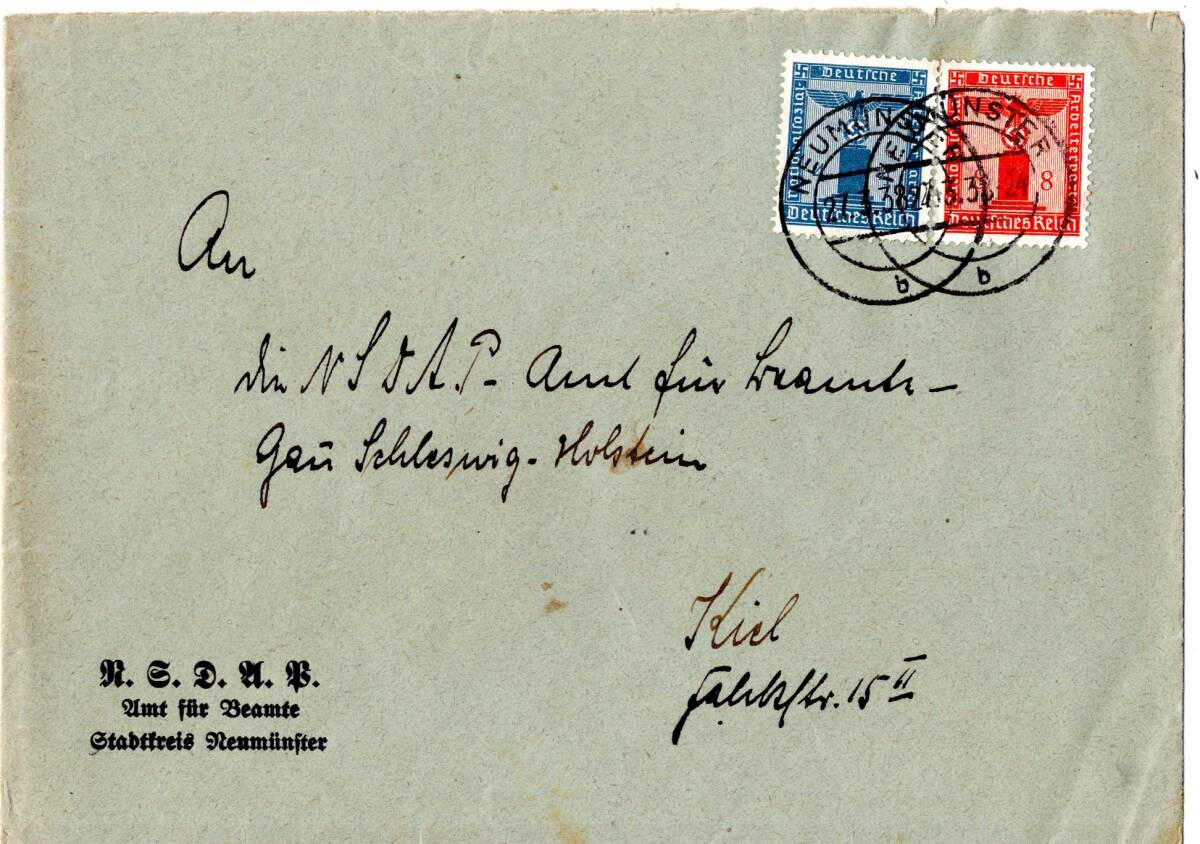 Deutsche
Nationalsozial-
Deutsches Reich
Deutsche
Arbeiterpartei
8 8
Deutsches Reich
NEUMÜNSTER
b
NEUMÜNSTER
b
An
die NSDAP- Amt für Beamte –
Gau Schleswig-Holstein
Kiel
15 II
N. S. D. A. P.
Amt für Beamte
Stadtkreis Neumünster